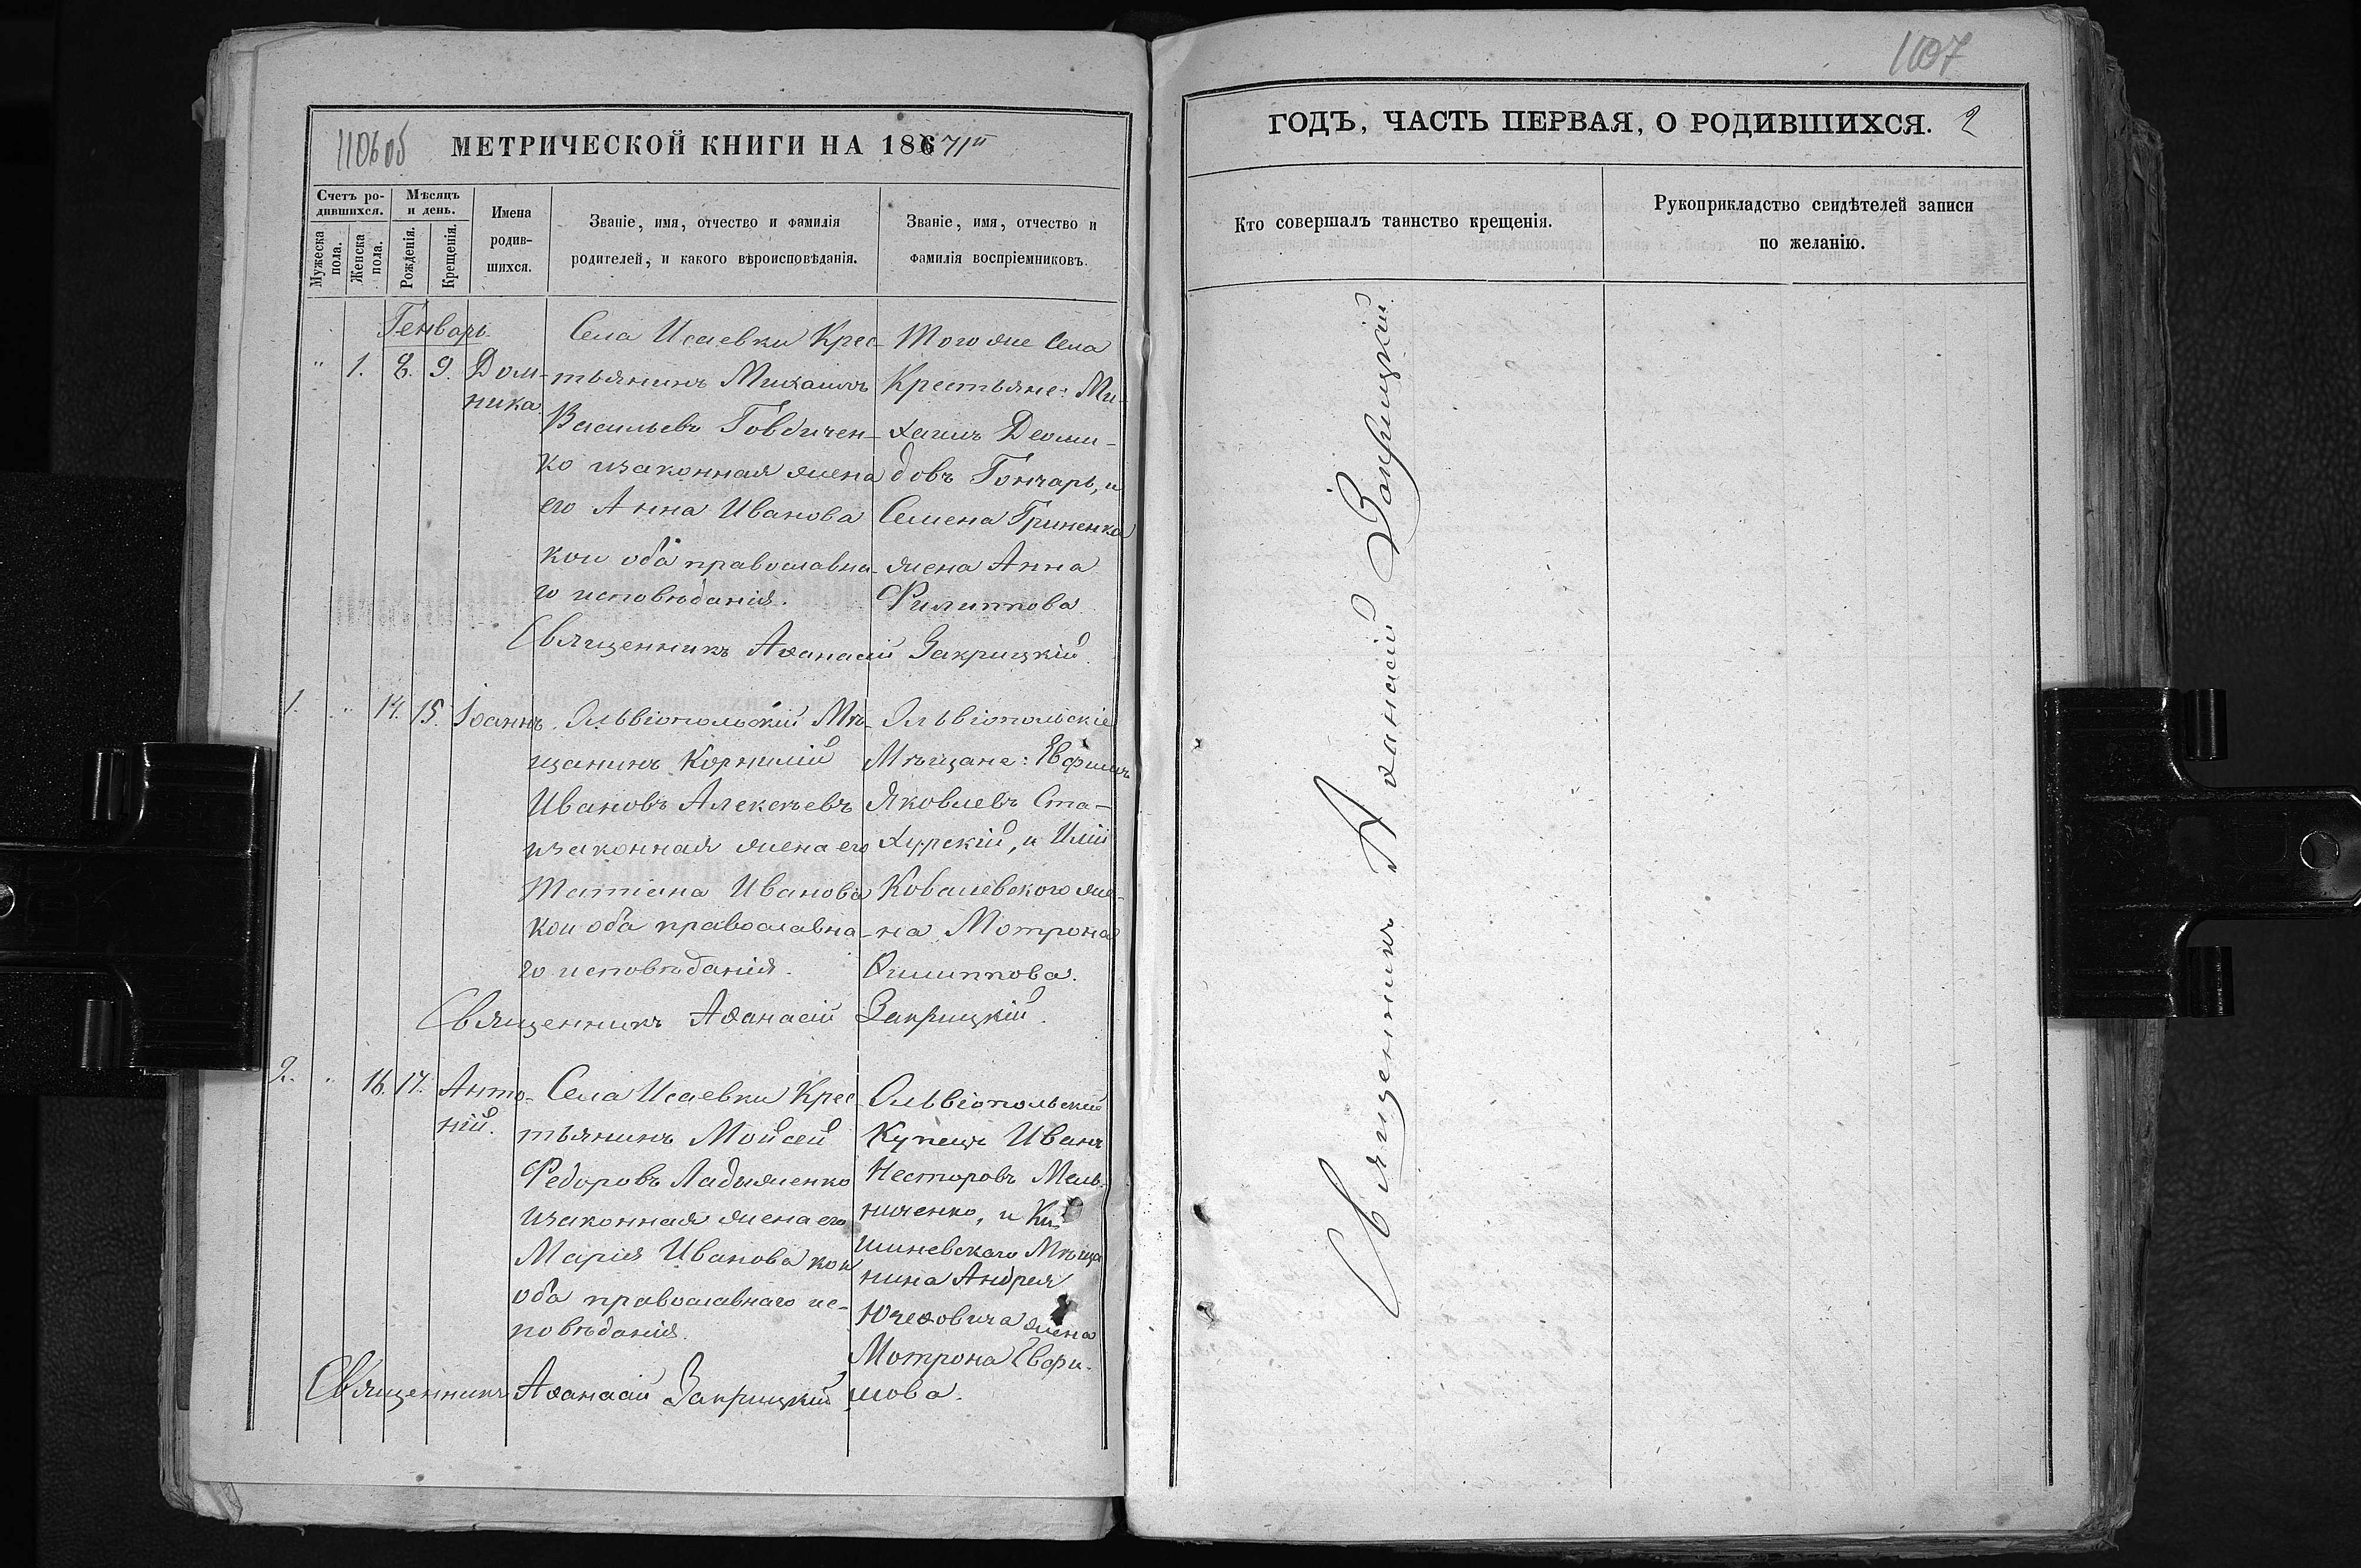 1106об МЕТРИЧЕСКОЙ КНИГИ НА 1871й
Счетъ ро-
дившихся.
Мѣсяцъ
и день.
Мужеска
пола.
Женска
пола.
Рожденія.
Крещенія.
Имена
родив-
шихся.
Званіе, имя, отчество и фамилія
родителей, и какого вѣроисповѣданія.
Званіе, имя, отчество и
фамилія воспріемниковъ.
Генварь
" 1. 8. 9. Дом-
ника.
Села Исаевки Крес-
тьянинъ Михаилъ
Васильевъ Говдичен-
ко изаконная жена
его Анна Иванова
кои оба православна-
го исповѣданія.
Того же Села
Крестьяне: Ми-
хаилъ Деоми-
довъ Гончарь, и
Семена Гриненка
жена Анна
Филиппова
Священникъ Аѳанасій Закрицкій.
1. " 14. 15. Іоаннъ.
Ольвіопольскій Мѣ-
щанинъ Корнилій
Ивановъ Алексѣевъ
изаконная жена его
Татіана Иванова
кои оба православна-
го исповѣданія.
Ольвіопольскіе
Мѣщане: Евфимъ
Яковлевъ Ста-
хурскій, и Иліи
Ковалевского же-
на Мотрона
Филиппова.
Священникъ Аѳанасій Закрицкій.
2. " 16. 17. Анто-
ній.
Села Исаевки Крес-
тьянинъ Мойсей
Федоровъ Ладыженко
изаконная жена его
Марія Иванова кои
оба православнаго ис-
повѣданія.
Ольвіопольскій
Купецъ Иванъ
Несторовъ Мель-
ниченко, и Ки-
шиневскаго Мѣща
нина Андрея
Юрековича жена
Мотрона Евфи-
мова.
Священникъ Аѳанасій Закрицкій
1107
ГОДЪ, ЧАСТЬ ПЕРВАЯ, О РОДИВШИХСЯ. 2
Кто совершалъ таинство крещенія.
Рукоприкладство свидѣтелей записи
по желанію.
Священникъ Аѳанасій Закрицкій.